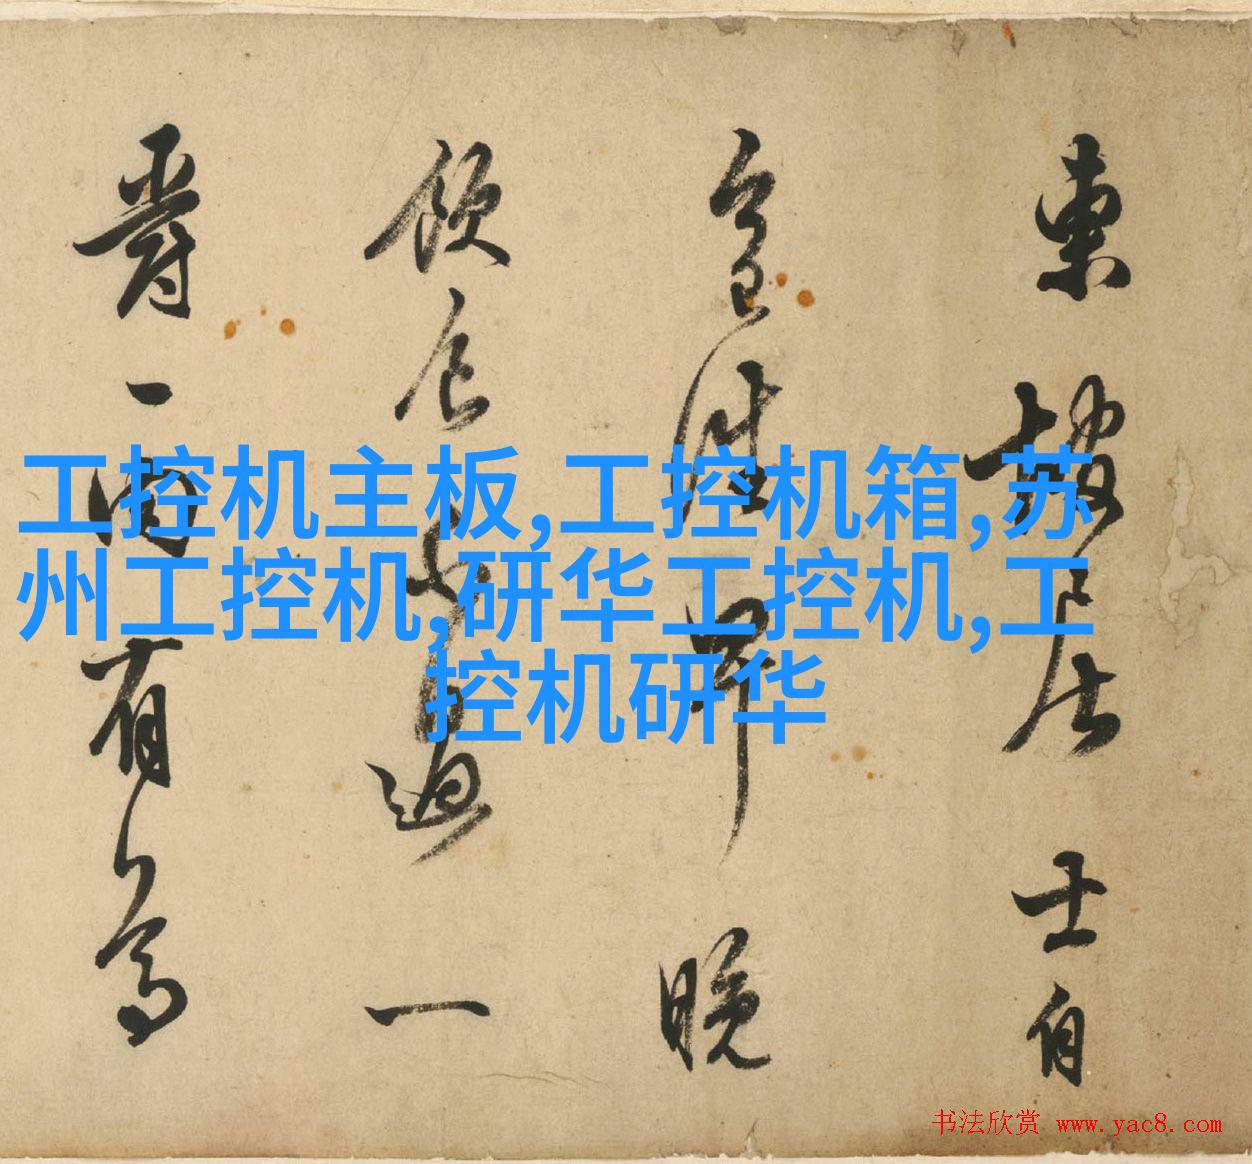 東坡居士自
今日往早晚
飲食不過一
爵一肉有
工控机主板,工控机箱,苏
州工控机,研华工控机,工
控机研华
书法欣赏 www.yac8.com